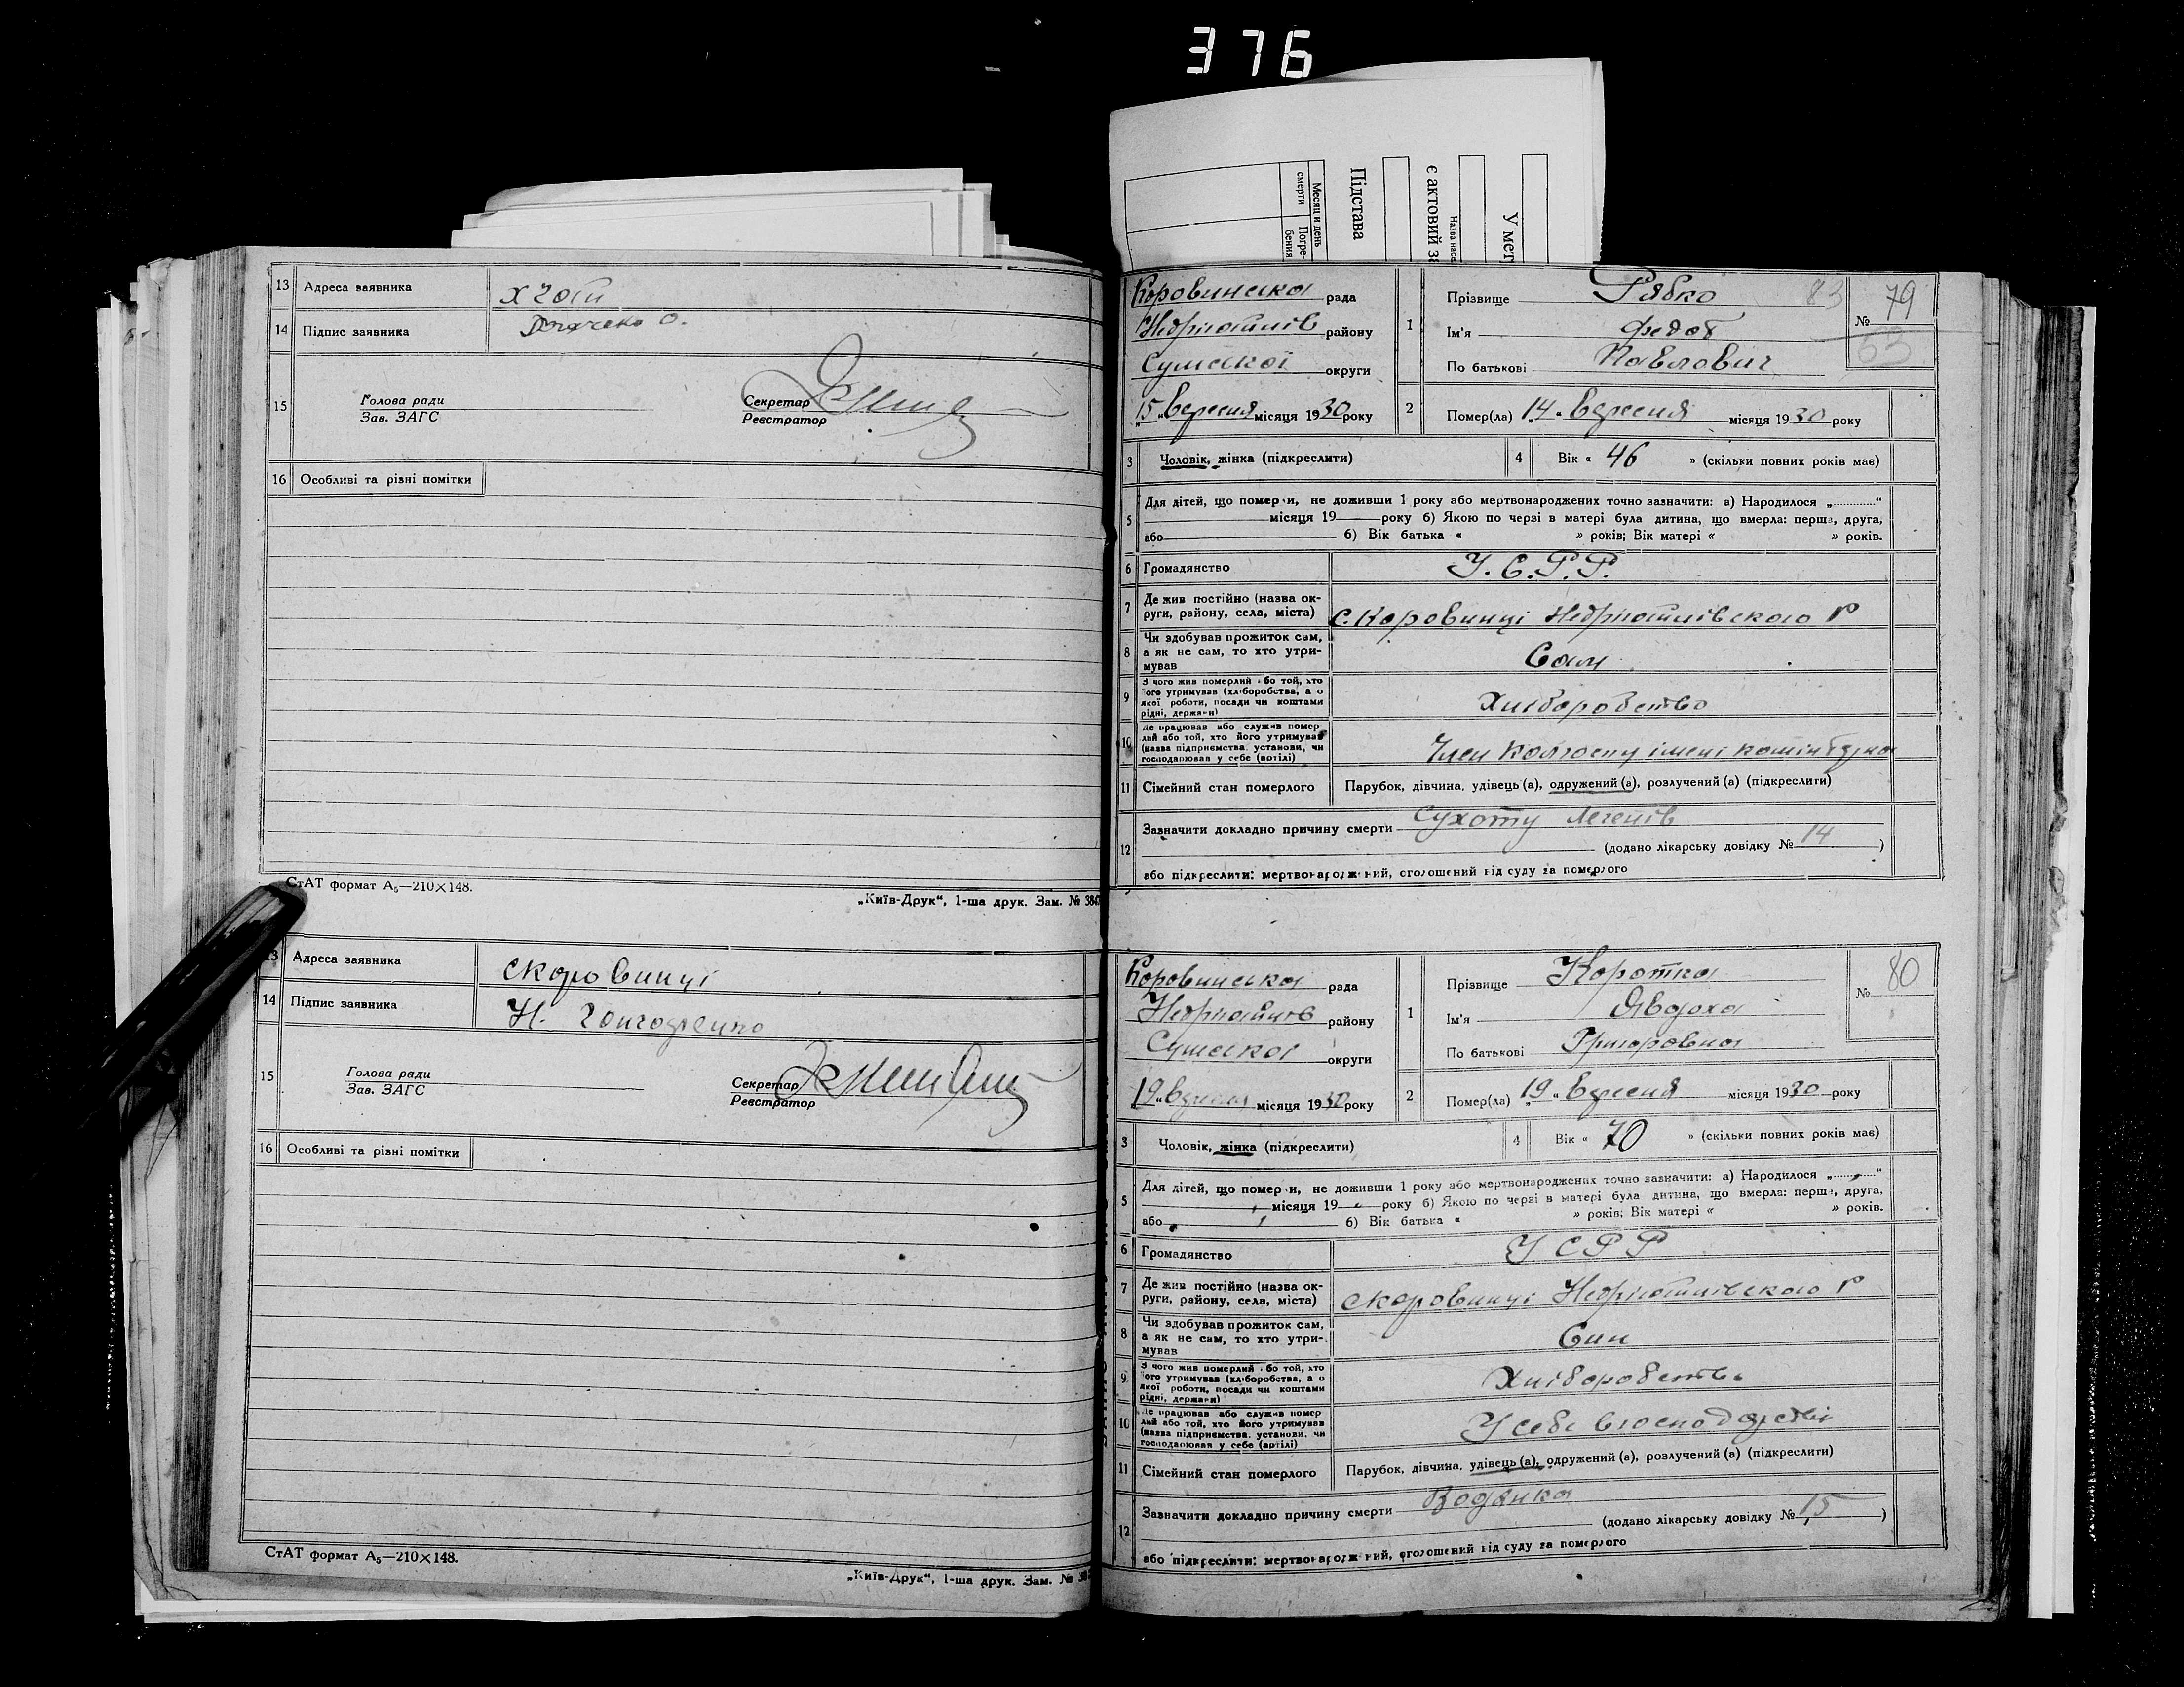 376
Місяц и день смерти
Погре-бения
Підстава
є актовий за
Назва насе
У мет
13 Адреса заявника
14 Підпис заявника
15 Голова ради
Зав. ЗАГС
Секретар
Реєстратор
16 Особливі та різні помітки
СтАТ формат А5—210×148.
„Київ-Друк“, 1-ша друк. Зам. № 384
13 Адреса заявника с Коровинці
14 Підпис заявника Н.
15 Голова ради
Зав. ЗАГС
Секретар
Реєстратор
16 Особливі та різні помітки
СтАТ формат А5—210×148.
„Київ-Друк“, 1-ша друк. Зам. № 38
Коровинська рада
Недригайлів району
Сумської округи
„15“ вересня місяця 1930 року
1 Прізвище Рябко 83
Ім'я Федот
По батькові Павлович
№ 79
53
2 Помер(ла) „14“ вересня місяця 1930 року
3 Чоловік, жінка (підкреслити)
4 Вік « 46 » (скільки повних років має)
5 Для дітей, що померли, не доживши 1 року або мертвонароджених точно зазначити: а) Народилося „ “
місяця 19 року б) Якою по черзі в матері була дитина, що вмерла: перша, друга,
або б) Вік батька « » років; Вік матері « » років.
6 Громадянство У.С.Р.Р.
7 Де жив постійно (назва ок-
руги, району, села, міста) с. Коровинці Недригайлівського Р
8 Чи здобував прожиток сам,
а як не сам, то хто утри-
мував Сам
9 З чого жив померлий або той, хто
його утримував (хліборобства, а о
якої роботи, посади чи коштами
рідні, держави) Хліборобство
10 Де працював або служив помер
лий або той, хто його утримував
(назва підприємства, установи, чи
господарював у себе (артілі) Член Колгоспу імені Комінтерна
11 Сімейний стан померлого Парубок, дівчина, удівець (а), одружений (а), розлучений (а) (підкреслити)
12 Зазначити докладно причину смерти Сухоти легенів
(додано лікарську довідку № 14 )
або підкреслити: мертвонароджений, оголошений від суду за померлого
Коровинська рада
Недригайлів району
Сумської округи
„19“ вересня місяця 1930 року
1 Прізвище Коротка
Ім'я Явдоха
По батькові Григоровна
№ 80
2 Помер(ла) „19“ вересня місяця 1930 року
3 Чоловік, жінка (підкреслити)
4 Вік « 70 » (скільки повних років має)
5 Для дітей, що померли, не доживши 1 року або мертвонароджених точно зазначити: а) Народилося „ “
місяця 19 року б) Якою по черзі в матері була дитина, що вмерла: перша, друга,
або б) Вік батька « » років; Вік матері « » років.
6 Громадянство У С Р Р
7 Де жив постійно (назва ок-
руги, району, села, міста) с Коровинці Недригайлівського Р
8 Чи здобував прожиток сам,
а як не сам, то хто утри-
мував Син
9 З чого жив померлий або той, хто
його утримував (хліборобства, а о
якої роботи, посади чи коштами
рідні, держави) Хліборобство
10 Де працював або служив помер
лий або той, хто його утримував
(назва підприємства, установи, чи
господарював у себе (артілі) У себе в господарстві
11 Сімейний стан померлого Парубок, дівчина, удівець (а), одружений (а), розлучений (а) (підкреслити)
12 Зазначити докладно причину смерти Водянка
(додано лікарську довідку № 15 )
або підкреслити: мертвонароджений, оголошений від суду за померлого